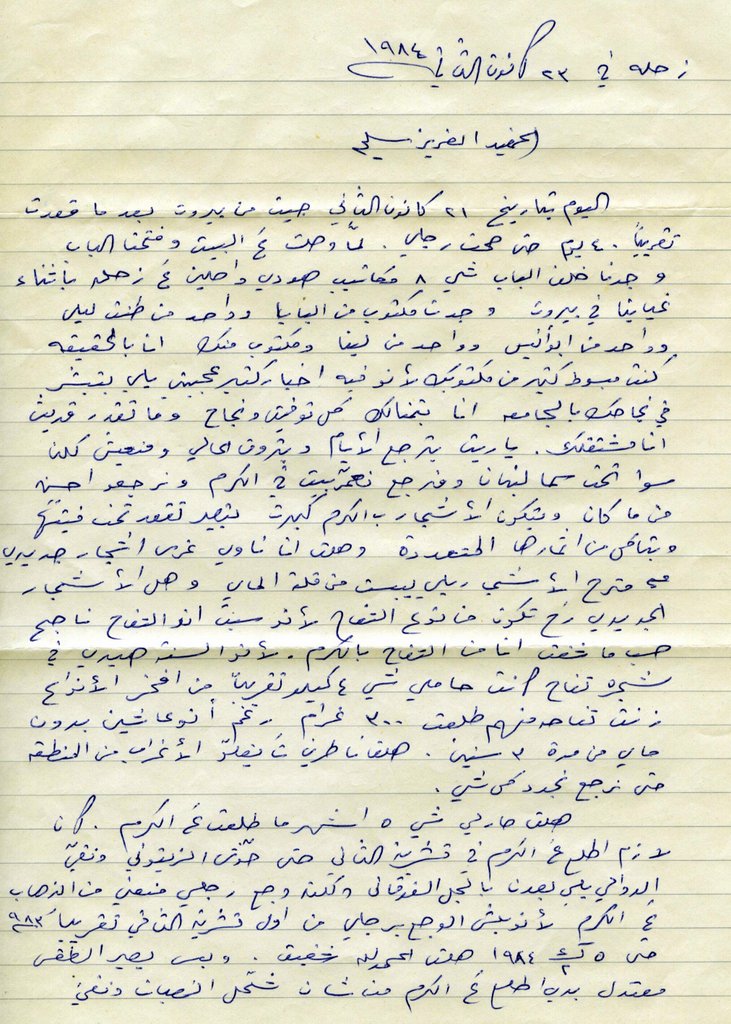 زحله في ٢٣ كانون الثاني ١٩٨٤
الحفيد العزيز سليم
اليوم بتاريخ ٢١ كانون الثاني جيت من بيروت بعد ما قعدت
تقريباً ٤٠ يوم حتى صحت رجلي. لمّا وصلت عَ البيت وفتحنا الباب
وجدنا خلف الباب شي ٨ مكاتيب هودي واصلين عَ زحله بأثناء
غيابنا في بيروت وجدت مكتوب من اليابا وواحد من طنت ليلى
وواحد من ابو أنيس وواحد من لينا ومكتوب منك انا بالحقيقه
كنت مبسوط كتير من مكتوبك لأنو فيه اخبار كتير عجبتني يلي بتبشر
في نجاحك بالجامعه انا بتمنالك كل توفيق ونجاح وما تقدر قديش
انا مشتقلك. يا ريت بترجع الأيام وبتروق الحالي ومنعيش كلنا
سوا تحت سما لبنان ومنرجع نعمّر بيت في الكرم ونرجعو احسن
من ما كان وبتكون الأشجار بالكرم كبرت بتصير تقعد تحت فيتها
وبتاكل من اثمارها المتعددة وهلق انا ناوي غرس اشجار جديدي
مترح الأشجار يلي يبست من قلة الماي وهل الأشجار
الجديدي رح تكون من نوع التفاح لأنو سبت انو التفاح ناجح
حسب ما شفت انا من التفاح بالكرم. لأنو السنة هيدي في
شجره تفاح كانت حاملي شي ٤ كيلو تقريباً من افخر الأنواع
زنت تفاحه منهم طلعت ٣٠٠ غرام رغم أنو عاشين بدون
ماي من مدة ٣ سنين. هلق ناطرين تَ يفلّو الأغراب من المنطقه
حتى نرجع نجدد كل شي.
هلق صارلي شي ٥ اشهر ما طلعت عَ الكرم. كان
لازم اطلع عَ الكرم في تشرين الثاني حتى حوّش الزيتوني ونقّي
الدوالي يلي بعدن بالجل الفوقاني ولكن وجع رجلي منعني من الذهاب
عَ الكرم لأنو بلّش الوجع برجلي من اول تشرين الثاني تقريباً ٩٨٣
حتى ٥ ك٢ ١٩٨٤ هلق الحمدلله خفيف. وبس يصير الطقس
معتدل بدي اطلع عَ الكرم من شان شحّل النصبات ونقّي